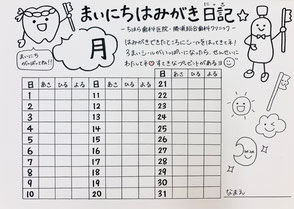 まいにちはみがき日記☆
にっき
－ちはら歯科医院・横須総合歯科クリニック－
まいにち
がんばってね!!
月
はみがきできたところにシールをはってきてネ！
うまいシールがいっぱいになったら、せんせいに
わたしてネ すてきなプレゼントがあるヨ
日 あさ ひる よる 日 あさ ひる よる 21
1 11 22
2 12 23
3 13 24
4 14 25
5 15 26
6 16 27
7 17 28
8 18 29
9 19 30
10 20 31
なまえ